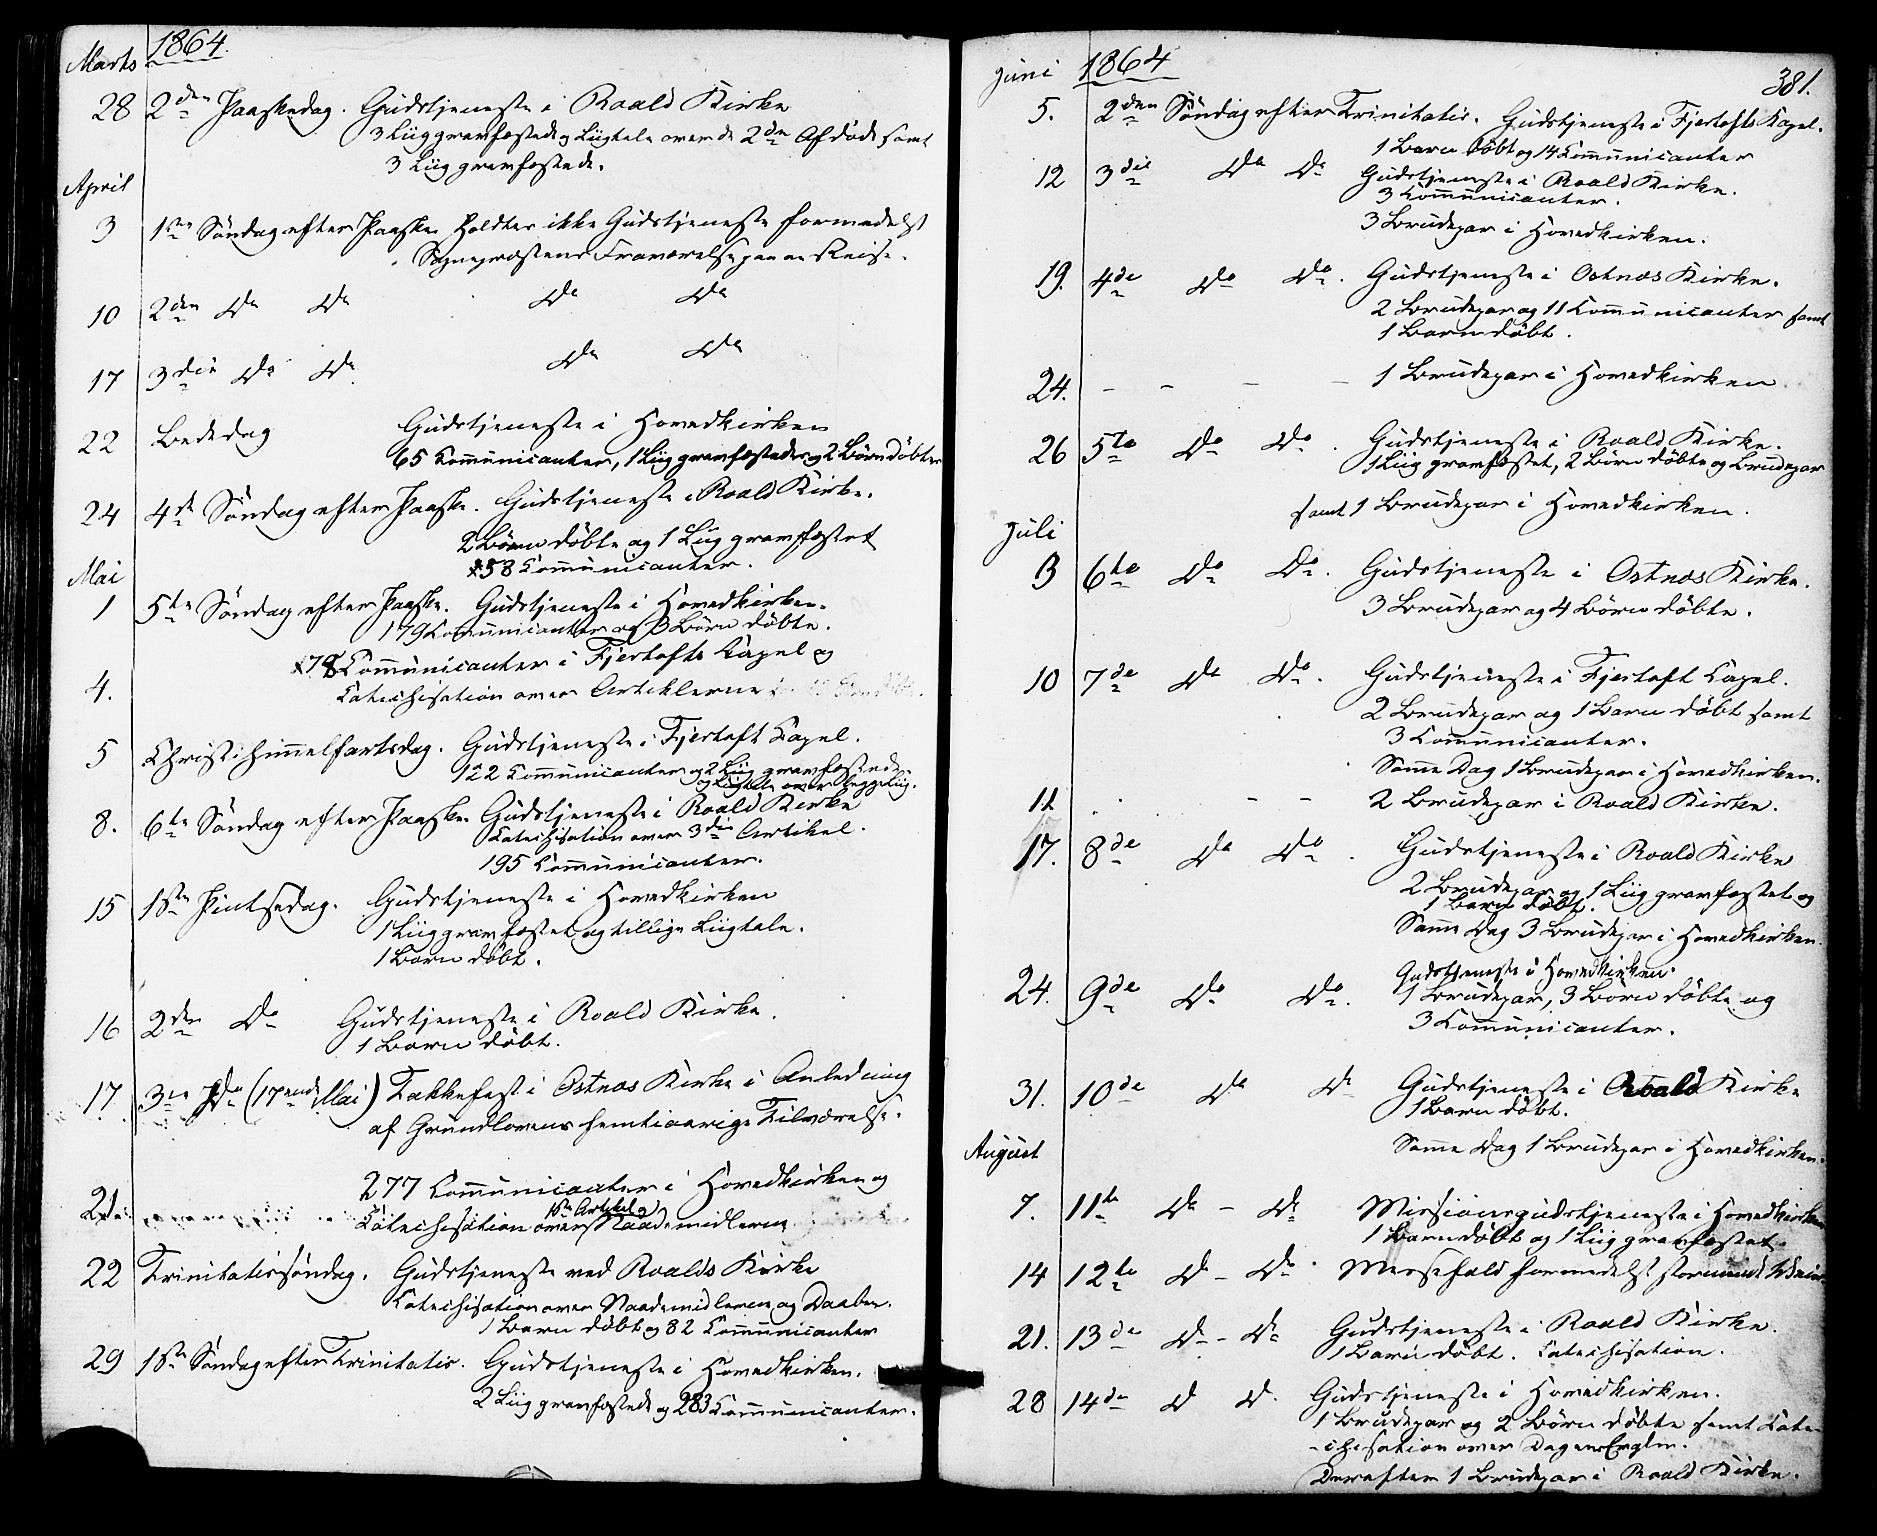 1864.
Marts
28 2den Paaskedag. Gudstjeneste i Roald Kirke
3 Liig gravfæstede og Liigtale over de 2de Afdøde samt
3 Liig gravfæstede.
April
3 1ste Søndag efter Paaske. Holdtes ikke Gudstjeneste formedelst
Sognepræstens Fraværelse paa en Reise.
10 2den Do Do Do Do
17 3die Do Do Do Do
22 Bededag Gudstjeneste i Hovedkirken
65 Communicanter, 1 Liig gravfæstedes og 2 Børn døbtes
24 4de Søndag efter Paaske. Gudstjeneste i Roald Kirke.
2 Børn døbte og 1 Liig gravfæstet
158 Communicanter.
Mai
1 5te Søndag efter Paaske. Gudstjeneste i Hovedkirken.
179 Communicanter og 3 Børn døbte.
4. 178 Communicanter i Fjertofts Capel og
Catechisation over Artiklerne
5 Christi Himmelfartsdag. Gudstjeneste i Fjertoft Capel.
122 Communicanter og 2 Liig gravfæstede
og Liigtale over begge Liig.
8. 6te Søndag efter Paaske. Gudstjeneste i Roald Kirke
Catechisation over 3die Artikel.
195 Communicanter.
15 1ste Pintsedag. Gudstjeneste i Hovedkirken
1 Liig gravfæstet og tillige Liigtale.
1 Barn døbt.
16 2den Do Gudstjeneste i Roald Kirke.
1 Barn døbt.
17. 3die Do (17ende Mai) Takkefest i Østnæs Kirke i Anledning
af Grundlovens femtiaarige Tilværelse.
21 277 Communicanter i Hovedkirken og
1ste Artikel og
Catechisation over Naademidlerne
22 Trinitatissøndag. Gudstjeneste ved Roalds Kirke
Catechisation over Naademidlerne og Daaben.
1 Barn døbt og 82 Communicanter
29 1ste Søndag efter Trinitatis. Gudstjeneste i Hovedkirken.
2 Liig gravfæstede og 283 Communicanter.
1864
381.
Juni
5. 2den Søndag efter Trinitatis. Gudstjeneste i Fjertofts Capel.
1 Barn døbt og 14 Communicanter
12 3die Do Do Gudstjeneste i Roald Kirke.
3 Communicanter.
3 Brudepar i Hovedkirken.
19. 4de Do Do. Gudstjeneste i Østnæs Kirke.
2 Brudepar og 11 Communicanter samt
1 Barn døbt.
24. - - - - 1 Brudepar i Hovedkirken
26 5te Do Do. Gudstjeneste i Roald Kirke.
1 Liig gravfæstet, 2 Børn døbte og Brudepar
samt 1 Brudepar i Hovedkirken.
Juli
3 6te Do Do. Gudstjeneste i Østnæs Kirke.
3 Brudepar og 4 Børn døbte.
10 7de Do Do. Gudstjeneste i Fjertoft Capel.
2 Brudepar og 1 Barn døbt samt
3 Communicanter.
Samme Dag 1 Brudepar i Hovedkirken.
11 - - 2 Brudepar i Roald Kirke.
17. 8de Do Do. Gudstjeneste i Roald Kirke
2 Brudepar og 1 Liig gravfæstet og
1 Barn døbt.
Samme Dag 3 Brudepar i Hovedkirken.
24. 9de Do Do. Gudstjeneste i Hovedkirken.
1 Brudepar, 3 Børn døbte og
3 Communicanter.
31. 10de Do Do Gudstjeneste i Roald Kirke
1 Barn døbt.
Samme Dag 1 Brudepar i Hovedkirken.
August
7. 11te Do - Do Missionsgudstjeneste i Hovedkirken
1 Barn døbt og 1 Liig gravfæstet.
14 12te Do - Do. Messefald formedelst stormende Veir.
21. 13de Do - Do Gudstjeneste i Roald Kirke.
1 Barn døbt. Catechisation.
28 14de D D. Gudstjeneste i Hovedkirken.
1 Brudepar og 2 Børn døbte samt Cate-
-chisation over Dagens Evglm.
Derefter 1 Brudepar i Roald Kirke.